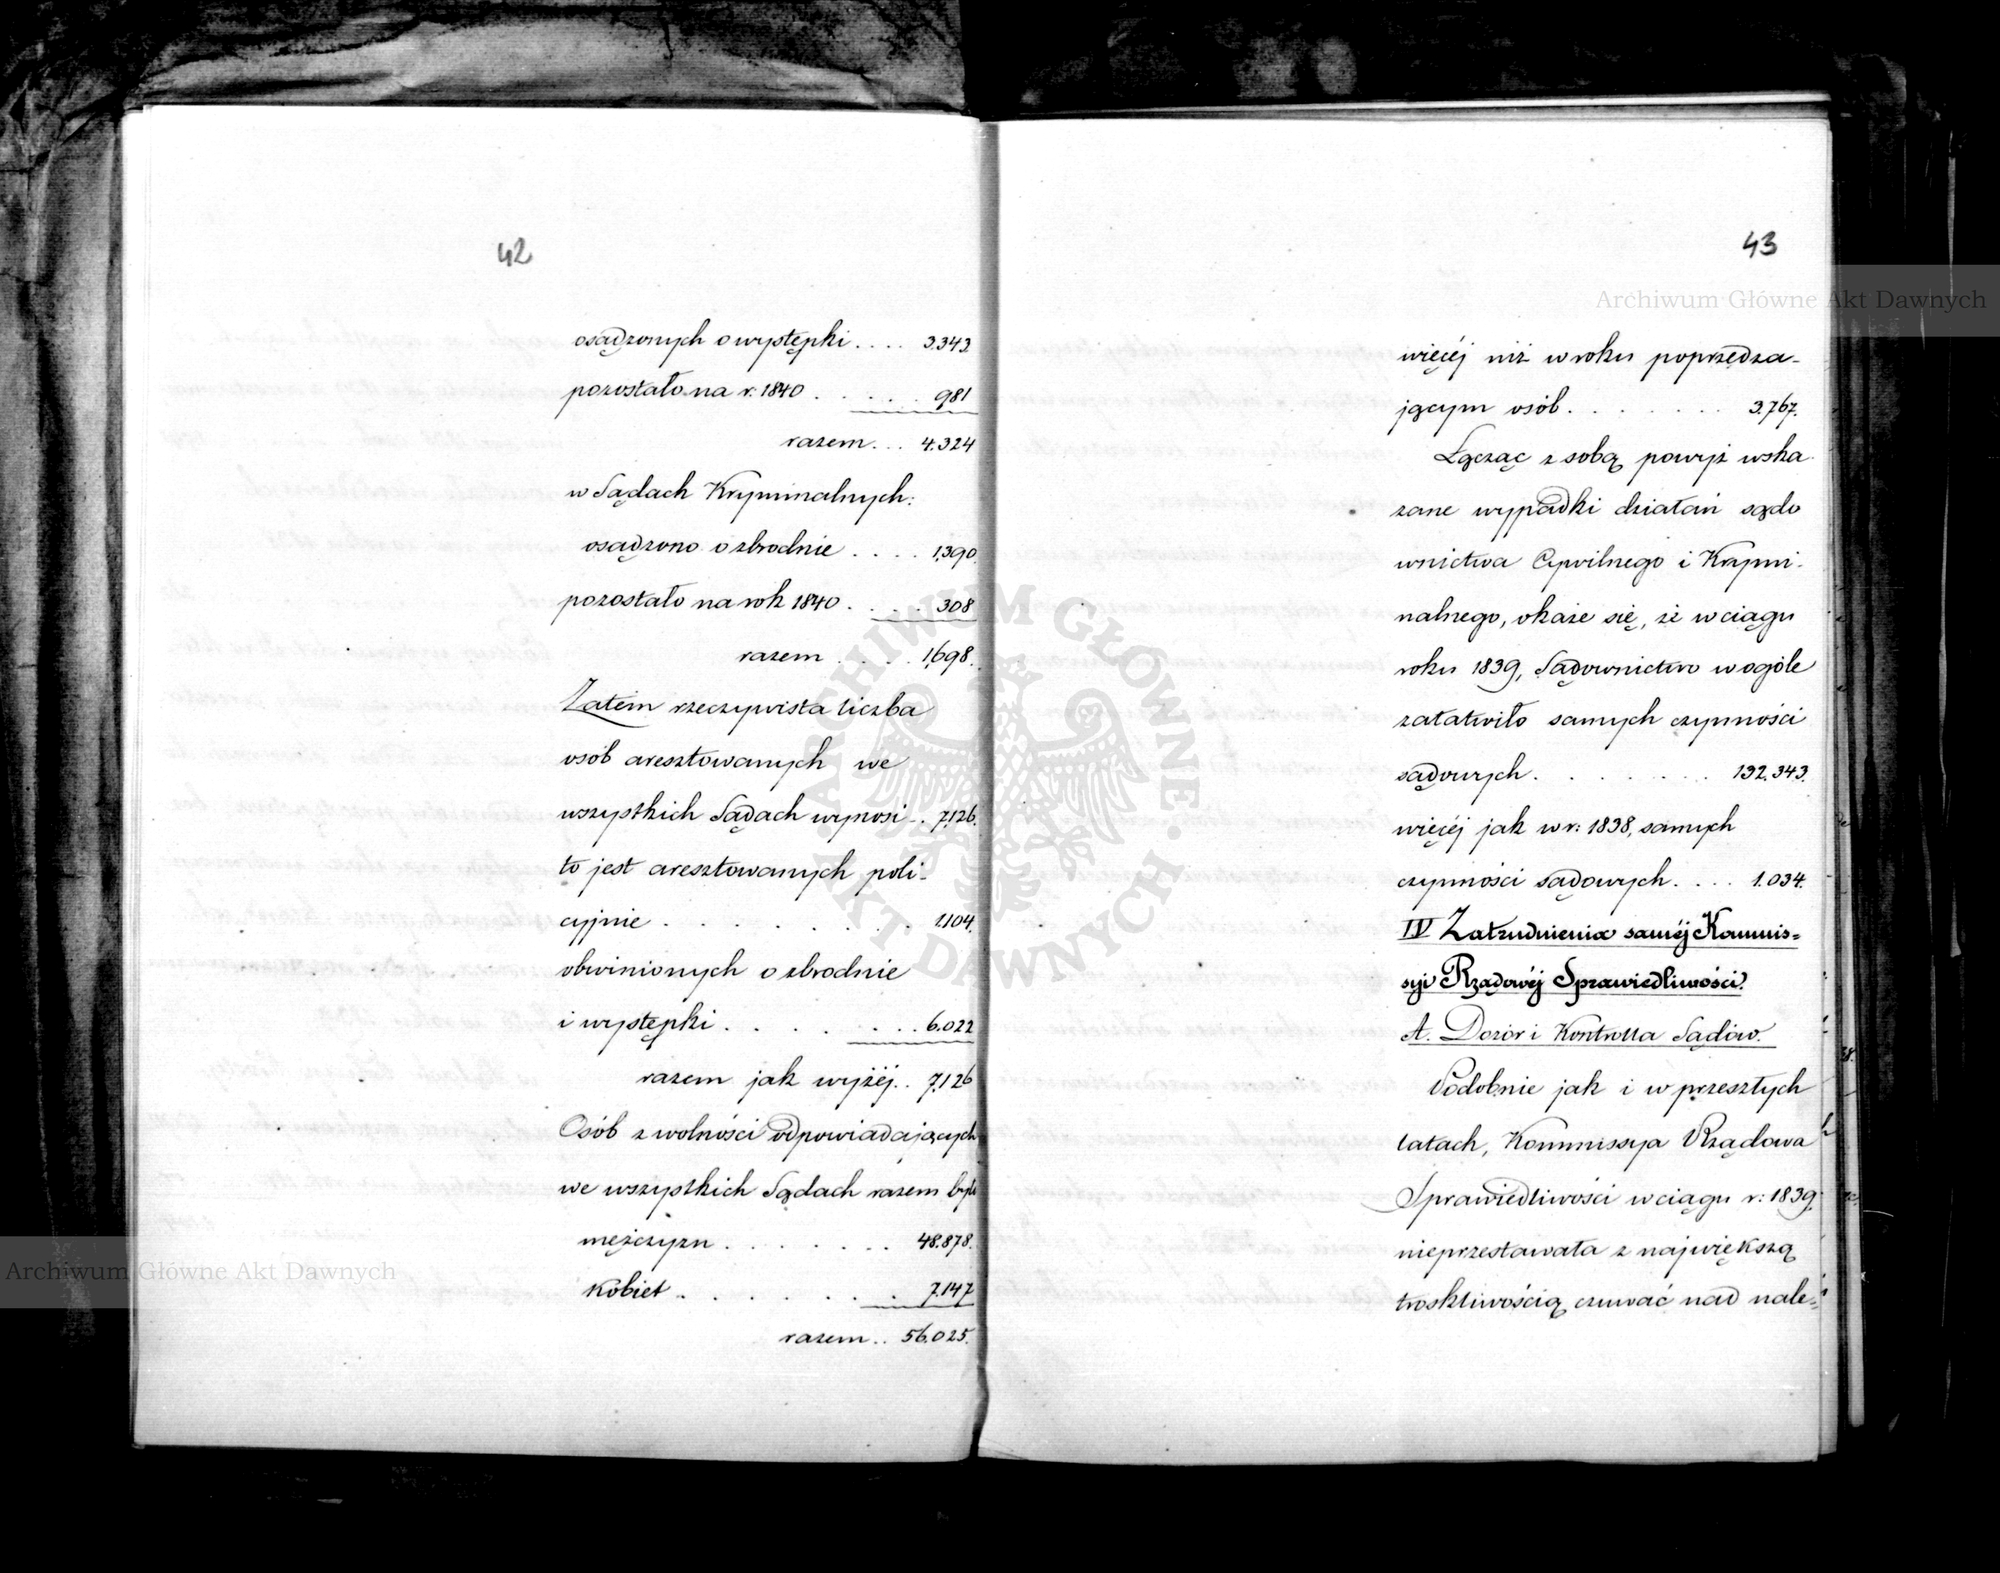 42
osądzonych o występki . . . . 3.343
pozostało na r: 1840 . . . . . 981
razem . . . 4.324
w Sądach Kryminalnych:
osądzono o zbrodnie . . . . 1,390.
pozostało na rok 1840 . . . . 308
razem . . . . 1,698.
Zatem rzeczywista liczba
osób aresztowanych we
wszystkich Sądach wynosi . . 7,126.
to jest aresztowanych poli-
cyjnie . . . . . . . . 1.104.
obwinionych o zbrodnie
i występki . . . . . . . 6.022
razem jak wyżéj . . 7,126
Osób z wolności odpowiadających
we wszystkich Sądach razem było
mężczyzn . . . . . . . 48.878.
kobiet . . . . . . . 7.147
razem . . 56.025.
43
więcéj niż w roku poprzedza-
jącym osób . . . . . . . 3.767.
Łącząc z sobą powyż wska
zane wypadki działań sądo
wnictwa Cywilnego i Krymi-
nalnego, okaże się, że w ciągu
roku 1839, Sądownictwo w ogóle
załatwiło samych czynności
sądowych . . . . . . . 132.343.
więcéj jak w r: 1838, samych
czynności sądowych . . . . 1.034.
IV Zatrudnienia saméj Kommis=
syi Rządowéj Sprawiedliwości.
A. Dozór i Kontrolla Sądów.
Podobnie jak i w przeszłych
latach, Kommissya Rządowa
Sprawiedliwości w ciągu r: 1839.
nieprzestawała z największą
troskliwością czuwać nad nale=
Archiwum Główne Akt Dawnych
Archiwum Główne Akt Dawnych
ARCHIWUM GŁÓWNE AKT DAWNYCH